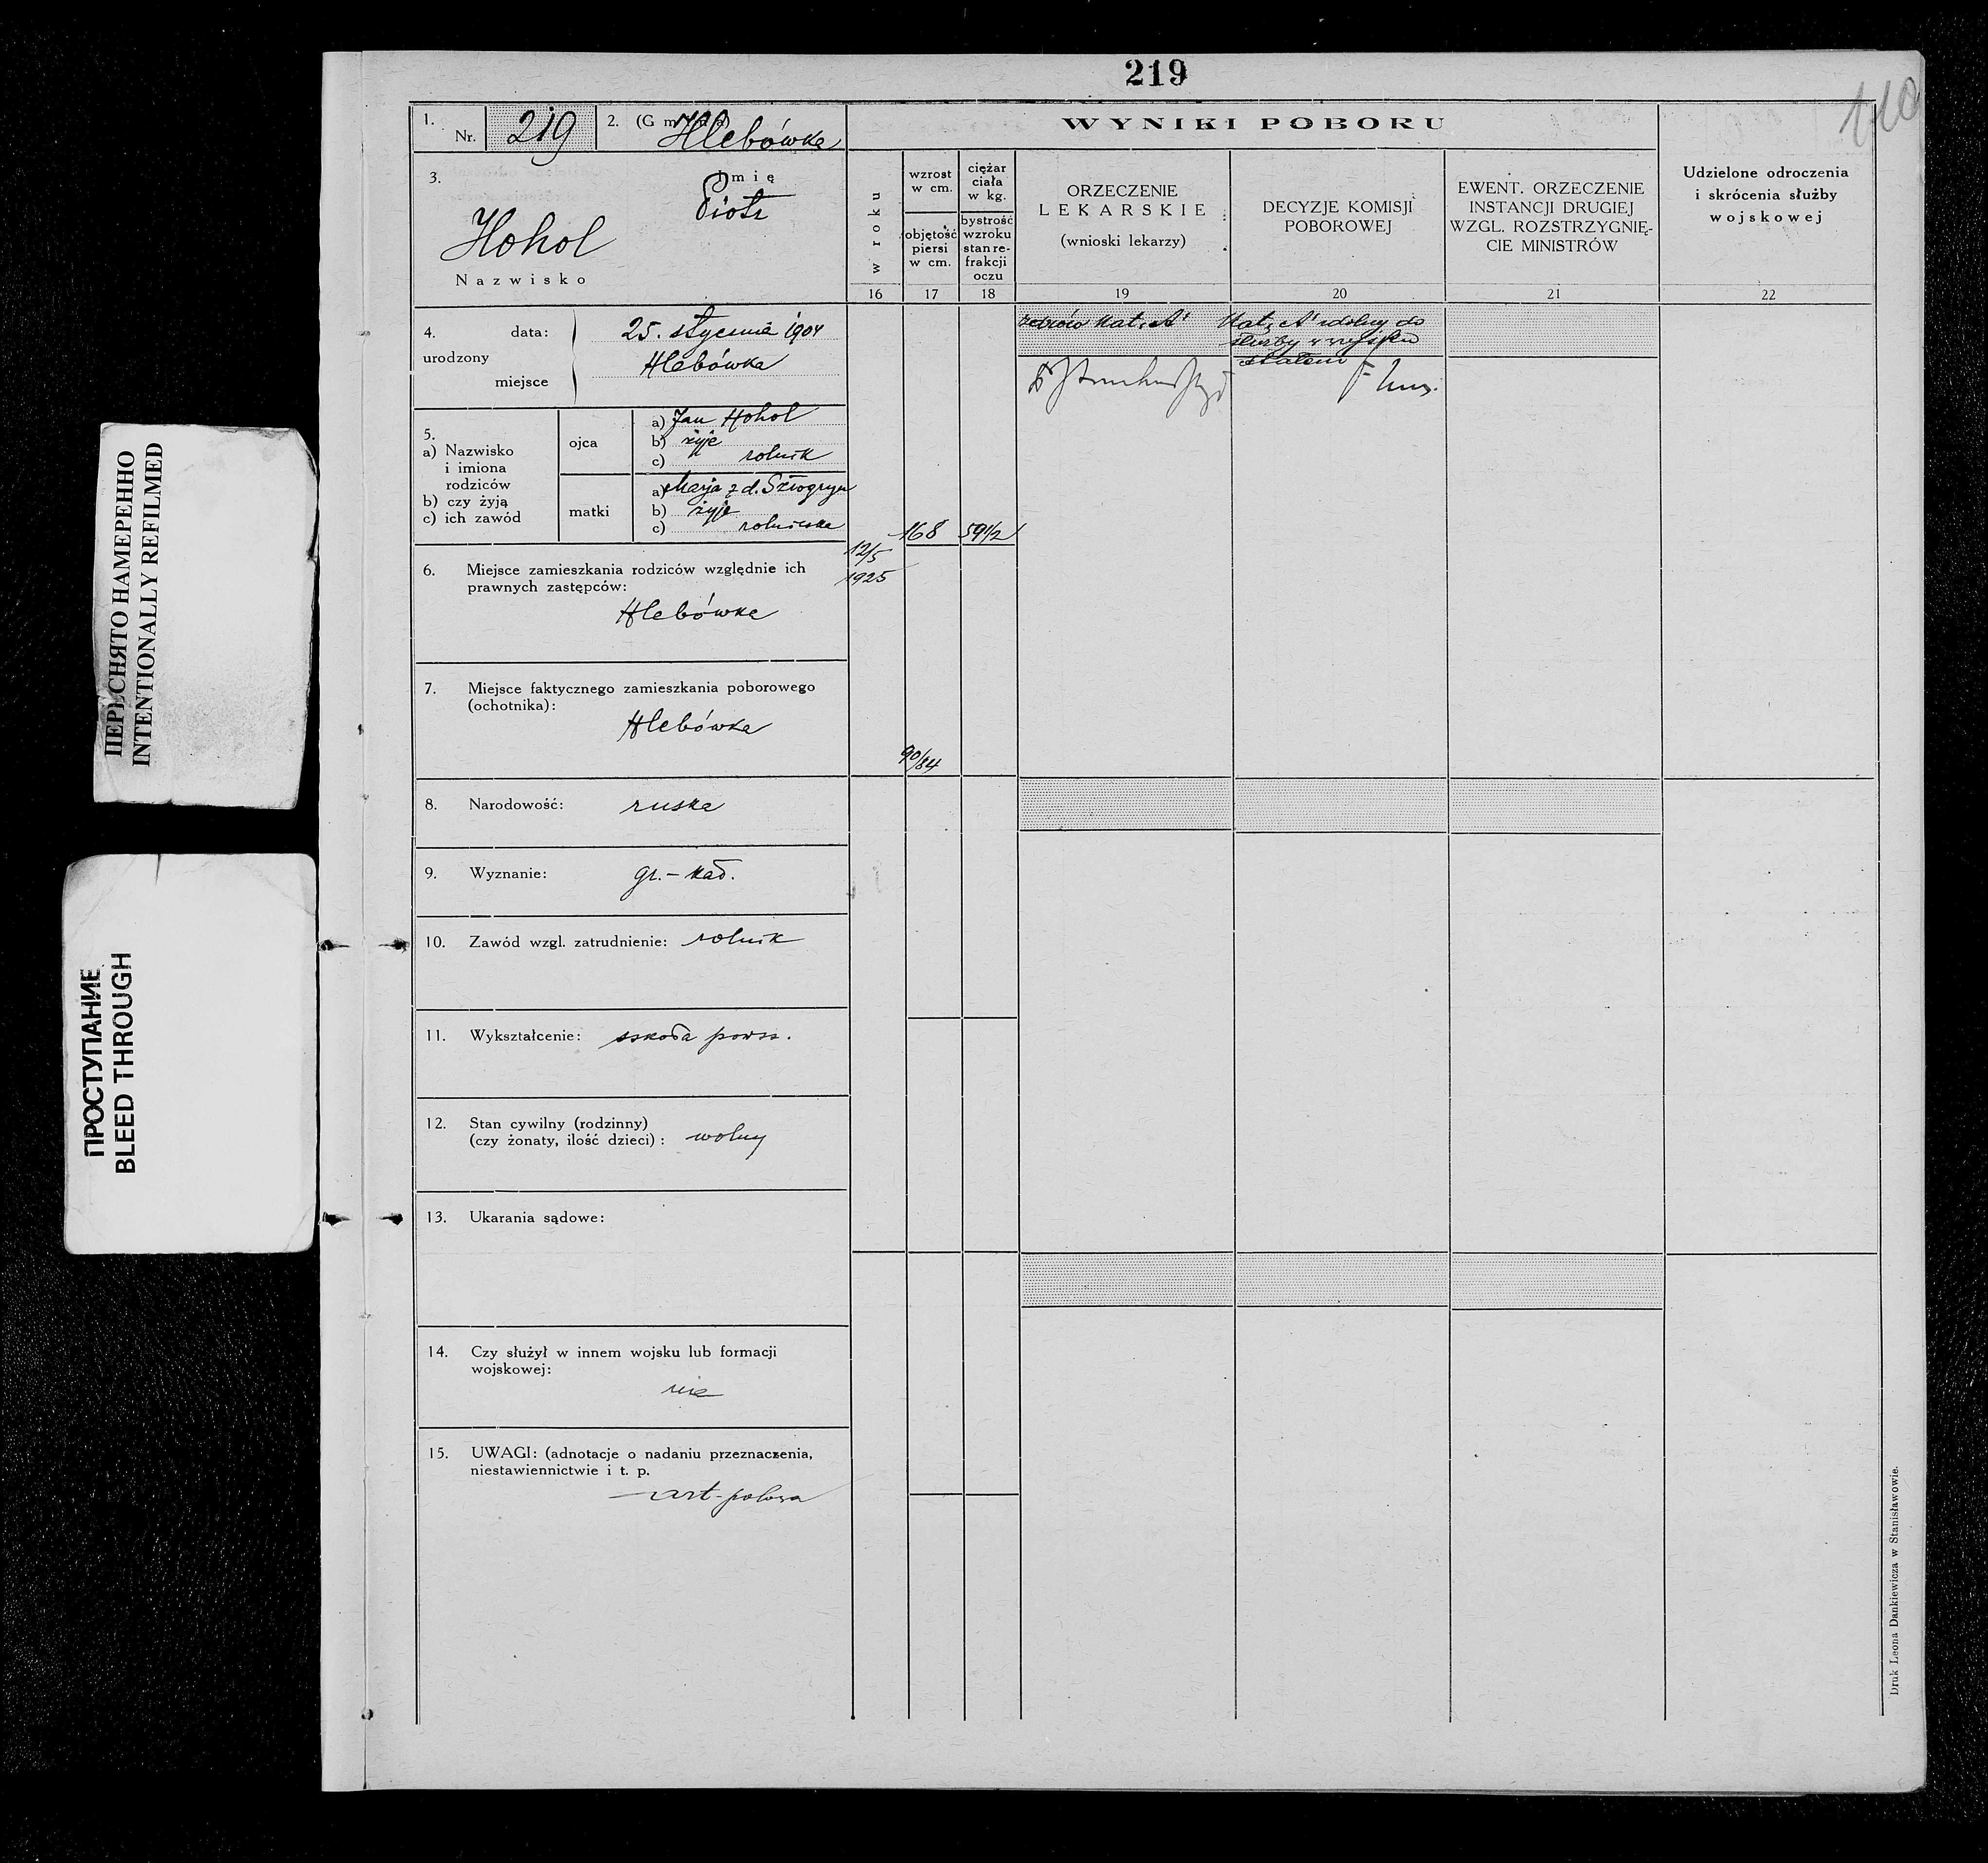 219
110
1.
Nr. 219
2. (Gmina) Hlebówka
WYNIKI POBORU
3.
Imię
Piotr
Hohol
Nazwisko
w roku
wzrost
w cm.
objętość
piersi
w cm.
ciężar
ciała
w kg.
bystrość
wzroku
stan re-
frakcji
oczu
ORZECZENIE
LEKARSKIE
(wnioski lekarzy)
DECYZJE KOMISJI
POBOROWEJ
EWENT. ORZECZENIE
INSTANCJI DRUGIEJ
WZGL. ROZSTRZYGNIĘ-
CIE MINISTRÓW
Udzielone odroczenia
i skrócenia służby
wojskowej
16 17 18 19 20 21 22
4. data: 25. stycznia 1904
urodzony
miejsce Hlebówka
Kat. A
Kat. A zdolny do
służby w wojsku
stałem
5.
a) Nazwisko
i imiona
rodziców
b) czy żyją
c) ich zawód
ojca
a) Jan Hohol
b) żyje
c) rolnik
matki
a) Marja z d.
b) żyje
c) rolniczka
12/5
1925
168
59 1/2
90/84
6. Miejsce zamieszkania rodziców względnie ich
prawnych zastępców:
Hlebówka
7. Miejsce faktycznego zamieszkania poborowego
(ochotnika):
Hlebówka
8. Narodowość: ruska
9. Wyznanie: gr.-kat.
10. Zawód wzgl. zatrudnienie: rolnik
11. Wykształcenie: szkoła powsz.
12. Stan cywilny (rodzinny)
(czy żonaty, ilość dzieci): wolny
13. Ukarania sądowe:
14. Czy służył w innem wojsku lub formacji
wojskowej:
nie
15. UWAGI: (adnotacje o nadaniu przeznaczenia,
niestawiennictwie i t. p.
art-polowa
Druk Leona Dankiewicza w Stanisławowie.
ПЕРЕСНЯТО НАМЕРЕННО
INTENTIONALLY REFILMED
ПРОСТУПАНИЕ
BLEED THROUGH